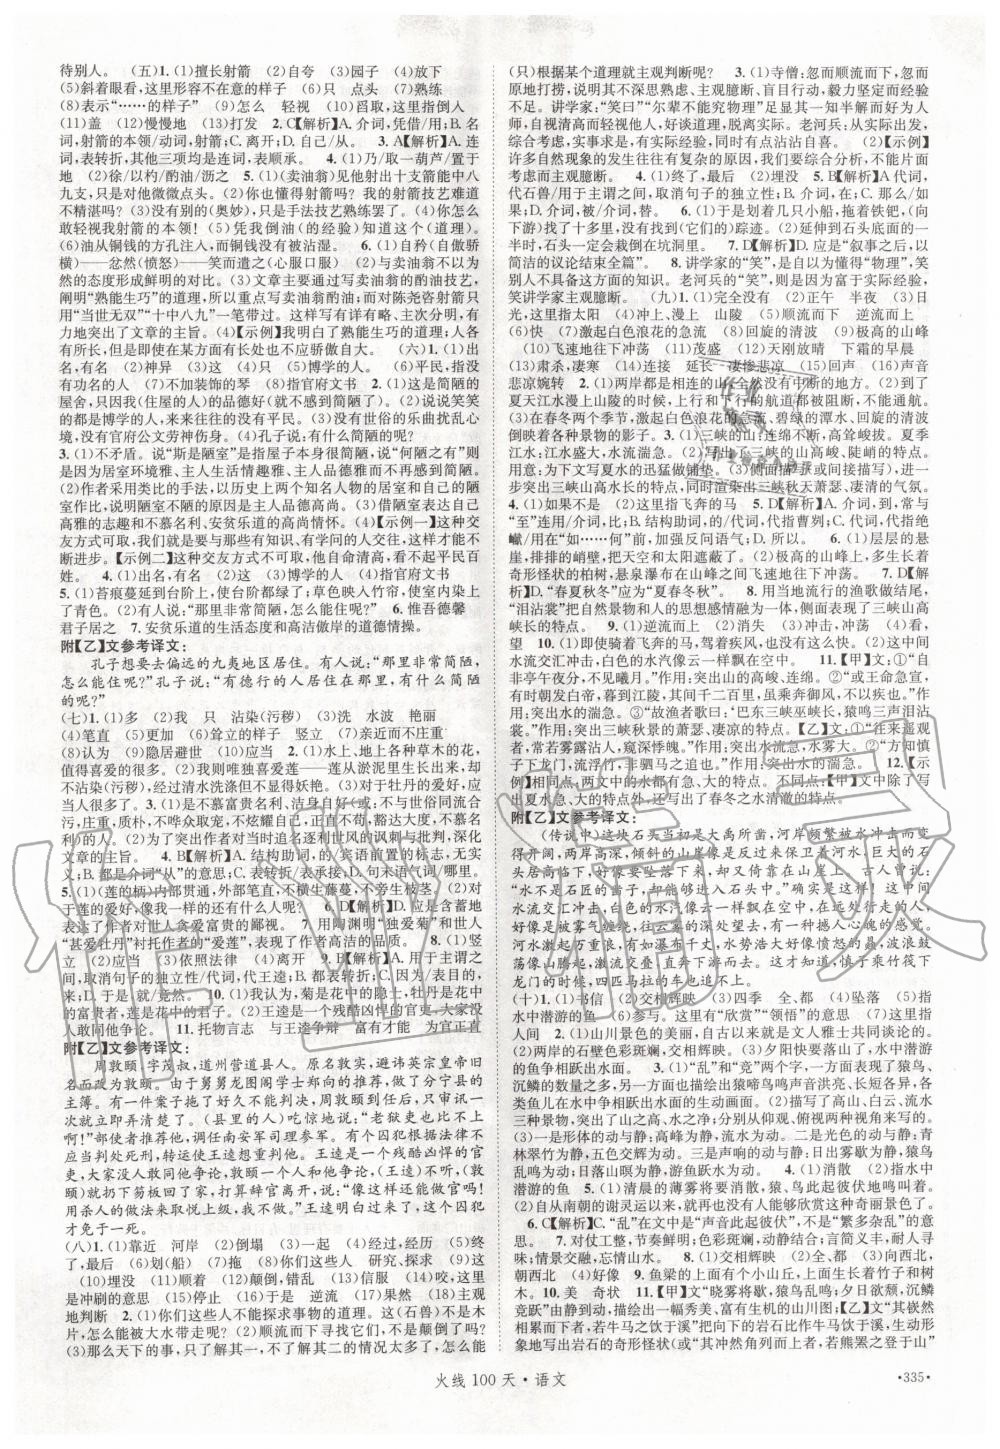 待别人。　(五)1.(1)擅长射箭　(2)自夸　(3)园子　(4)放下
(5)斜着眼看，形容不在意的样子　(6)只　点头　(7)熟练
(8)表示“……的样子”　(9)怎么　轻视　(10)舀取，这里指倒入
(11)盖　(12)慢慢地　(13)打发　2.C【解析】A.介词，凭借/用；B.名
词，射箭的本领/动词，射箭；C.离开；D.自己/从。　3.A【解析】A.连
词，表转折，其他三项均是连词，表承接。　4.(1)乃/取一葫芦/置于
地　(2)徐/以杓/酌油/沥之　5.(1)(卖油翁)见他射出十支箭能中八
九支，只是对他微微点头。(2)你也懂得射箭吗？我的射箭技艺难道
不精湛吗？(3)没有别的(奥妙)，只是手法技艺熟练罢了。(4)你怎么
敢轻视我射箭的本领！(5)凭我倒油(的经验)知道这个(道理)。
(6)油从铜钱的方孔注入，而铜钱没有被沾湿。　6.(1)自矜(自傲骄
横)——忿然(愤怒)——笑而遣之(心服口服)　(2)与卖油翁不动声
色的态度形成鲜明的对比。(3)文章主要通过写卖油翁的酌油技艺，
阐明“熟能生巧”的道理，所以重点写卖油翁酌油；而对陈尧咨射箭只
用“当世无双”“十中八九”一笔带过。这样写有详有略、主次分明，有
力地突出了文章的主旨。(4)【示例】我明白了熟能生巧的道理；人各
有所长，即使在某方面有长处也不应骄傲自大。　(六)1.(1)出名，
有名　(2)神异　(3)这　(4)只　(5)博学的人。　(6)平民，指没
有功名的人　(7)不加装饰的琴　(8)指官府文书　2.(1)这是简陋的
屋舍，只因我(住屋的人)的品德好(就不感到简陋了)。(2)说说笑笑
的都是博学的人，来来往往的没有知识浅薄的人。(3)没有世俗的乐曲扰乱
心境，没有官府公文劳神伤身。(4)孔子说：有什么简陋的呢？
3.(1)不矛盾。说“斯是陋室”是指屋子本身很简陋，说“何陋之有”则
是因为居室环境雅、主人生活情趣雅、主人品德高尚而不再感到简陋。
(2)作者采用类比的手法，以历史上两个著名人物的居室和自己的陋
室作比，说明陋室不陋的原因是主人品德高尚。(3)借陋室表达自己
高雅的志趣和不慕名利、安贫乐道的高尚情怀。(4)【示例一】这种交
友方式可取，我们就是要与那些有知识、有学问的人交往，这样才能不
断进步。【示例二】这种交友方式不可取，他自命清高，看不起平民百
姓。　4.(1)出名，有名　(2)这　(3)博学的人　(4)指官府文书
5.(1)苔痕蔓延到台阶上，使台阶都绿了；草色映入竹帘，使室内染上
了青色。(2)有人说：“那里非常简陋，怎么能居住呢？”　6.惟吾德馨
君子居之　7.安贫乐道的生活态度和高洁傲岸的道德情操。
附【乙】文参考译文：
孔子想要去偏远的九夷地区居住。有人说：“那里非常简陋，
怎么能住呢？”孔子说：“有德行的人居住在那里，有什么简陋
的呢？”
(七)1.(1)多　(2)我　只　沾染(污秽)　(3)洗　水波　艳丽
(4)笔直　(5)更加　(6)耸立的样子　竖立　(7)亲近而不庄重
(8)认为　(9)隐居避世　(10)应当　2.(1)水上、地上各种草木的花，
值得喜爱的有很多。(2)我却唯独喜爱莲——莲从淤泥里生长出来，却
不沾染(污秽)，经过清水洗涤但不显得妖艳。(3)对于牡丹的爱好，应
当人很多了。　3.(1)是不慕富贵名利、洁身自好，与世俗同流合污，
庄重、质朴，不哗众取宠，不炫耀自己，
利)的人。(2)为了突出作者对当时追名逐利世风的讽刺，突出
文章的主旨。　4.B【解析】A.结构助词，的/宾语前置的标志，无实义；
B.都是介词“从”的意思；C.表转折/表承接；D.句末语气词/啊。
5.(1)(莲的柄)内部贯通，外部笔直，不横生藤蔓，不旁生枝茎。(2)对
于莲的爱好，像我一样的还有什么人呢？　6.D【解析】D.应是含蓄地
表达了作者对世人贪爱富贵的鄙视。　7.用陶渊明“独爱菊”和世人
“甚爱牡丹”衬托作者的“爱莲”，表现了作者高洁的品质。　8.(1)竖
立　(2)应当　(3)依照法律　(4)离开　9.B【解析】A.用于主谓之
间，取消句子的独立性/代词，代王逵；B.都表转折；C.因为/来；
D.于是，就/竟然。　10.(1)我认为，菊是花中的隐士，牡丹是花中
的富贵者，莲是花中的君子。(2)王逵是一个残酷凶悍的官吏，大家没
人敢同他争论。　11.托物言志　与王逵争辩　富有才能　为官正直
附【乙】文参考译文：
周敦颐，字茂叔，道州营道县人。原名敦实，避讳英宗皇帝的旧
名而改为敦颐。由于舅舅龙图阁学士郑向的推荐，做了分宁县的
主簿。有一件案子拖了好久不能判决，周敦颐到任后，只审讯一次
就立即弄清楚了。(县里的人)吃惊地说：“老狱吏也比不上
啊！”部使者推荐他，调任南安军司理参军。有个囚犯根据法律不
应当判处死刑，转运使王逵想重判他。王逵是一个残酷凶悍的官
吏，大家没人敢同他争论，敦颐一个人和他争论，(王逵)不听，(敦
颐)就扔下笏板回了家，打算辞官离去，说：“像这样还能做官吗！
用杀人的做法来取悦上级，我不做。”王逵明白过来了，这个囚犯
才免于一死。
(八)1.(1)靠近　河岸　(2)倒塌　(3)一起　(4)经过，经历　(5)终
了，最后　(6)划(船)　(7)拖　(8)你们这些人　研究、探求　(9)被
(10)埋没　(11)颠倒，错乱　(12)信服　(13)
是冲刷的意思　(15)停止　(16)于是　(17)果然　(18)主观
地判断　2.(1)你们这些人不能探求事物的道理。这(石兽)不是木
片，怎么能被大水带走呢？(2)顺流而下寻找它们，不是颠倒了吗？
(3)那么天下的事，只了解其一，不了解其二的情况太多了，怎么能
(只)根据某个道理就主观判断呢？　3.(1)寺僧：忽而顺流而下，忽而
原地打捞，说明其不深思熟虑、主观臆断、盲目行动，处理问题考虑严重
不足。讲学家：“笑曰”“尔辈不能究物理”足显其一知半解而好为人
师，自视清高而轻视他人，好谈道理，脱离实际。老河兵：从实际出发，
综合考虑，实事求是，有实践经验，同时也有点沾沾自喜。　(2)【示例】
许多自然现象的发生往往有复杂的原因，我们要综合分析，不能片面
考虑而主观臆断。　4.(1)终了，最后　(2)埋没　5.B【解析】A.代词，
代石兽/用于主谓之间，取消句子的独立性；B.介词，在；C.那么/如
果；D.介词，为/动词，是。　6.(1)于是划着几只小船，拖着铁钯，(向
下游)找了十多里，没有找到(它们的)踪迹。(2)延伸到石头底面的
一半时，石头一定会栽倒在坑洞里。　7.D【解析】D.应是“叙事之后，以
简洁的议论结束全篇”。　8.讲学家的“笑”，是其自以为懂得“物理”，笑
别人不具备这方面的知识。老河兵的“笑”，则是因为具有实践经验，
笑讲学家主观臆断。　(九)1.(1)完全没有　(2)正午　半夜　(3)日
光，这里指太阳　(4)冲上、漫上　山陵　(5)顺流而下　逆流而上
(6)快　(7)激起白色浪花的急流　(8)回旋的清波　(9)极高的山峰
(10)飞速地往下冲荡　(11)茂盛　(12)天刚放晴　下霜的早晨
(13)肃杀，凄寒　(14)连接　延长　凄惨悲凉　(15)回声　(16)声音
悲凉婉转　2.(1)两岸都是相连的山，全然没有中断的地方。(2)到了
夏天江水漫上山陵的时候，上行和下行的航道都被阻断，不能通航。
(3)在春冬两个季节，激起白色浪花的急流、碧绿的潭水、回旋的清波
倒映着各种景物的影子。　3.(1)三峡的山：连绵不断，高耸陡峭。夏季
江水：江水盛大，水流湍急。　(2)写出了三峡山高峻、陡峭的特点。
用意：为下文写夏水的迅猛做铺垫。(3)侧面描写(或衬托)，进一
步突出三峡山高水长的特点，同时渲染出三峡秋天萧瑟、凄清的气氛。
4.(1)如果不是　(2)这里指飞奔的马　5.D【解析】A.介词，对，常与
“至”连用/介词，比；B.结构助词，的/代词，代指春冬之时；C.
用在“如……何”前，加强反问语气；D.所以。　6.(1)层层的
悬崖，排排的峭壁，把天空和太阳遮蔽了。(2)极高的山峰上，多生长着
奇形怪状的柏树，悬泉瀑布在山峰之间飞速地往下冲荡。　7.D【解
析】D.“春夏秋冬”应为“夏春冬秋”。　8.用渔者的渔歌做结尾，
“泪沾裳”把自然景物和人的思想感情融为一体，侧面表现了三峡山高水长
景色凄凉。　9.(1)逆流而上　(2)消散　(3)冲击，冲荡　(4)看，
望　10.(1)即使骑着飞奔的马，驾着疾风，也没有这么快。(2)这中间
水流交汇冲击，白色的水汽像云一样飘在空中。　11.【甲】文：①“自
非亭午夜分，不见曦月。”作用：突出山的高峻、连绵。②“或王命急宣，
有时朝发白帝，暮到江陵，其间千二百里，虽乘奔御风，不以疾也。”作
用：突出水的湍急。③“故渔者歌曰：‘巴东三峡巫峡长，猿鸣三声泪沾
裳。’”作用：突出三峡秋景的萧瑟、凄凉。【乙】文：①“往来遥观
者，常若雾露沾人，窥深悸魄。”作用：突出水流急，水雾大。②“方知慎
子下龙门，流浮竹，非驷马之追也。”作用：突出水的湍急。　12.【示
例】相同点：两文中的水都有急、大的特点。不同点：【甲】文中除了写
出夏水急、大的特点之外，还写出了春冬之水清澈的特点。
附【乙】文参考译文：
(传说中)这块石头当初是大禹所凿，河岸频繁被水冲击而变得
开阔，两岸非常高深，倾斜的山崖像是反过来保卫着河水，巨大的石
头居高临下好像要坠落下来，又好像依靠在山崖上。古人曾说：
“水不是石匠的凿子，却能够进入石头中。”确实是这样！这中间
水流交汇冲击，白色的水汽像云一样飘在空中，在远处行走观看的人
好像是被雾气缠绕，如果看向它的深处望去，有一种撼人心魄的感觉。
河水激起万重浪，有如瀑布千丈，水势浩大好像愤怒的巨浪，波浪鼓
荡像山腾起，激流交叠，直奔下游而去。我这才知道，慎子乘竹筏下
龙门的时候，四匹马拉的车也追不上。
(十)1.(1)书信　(2)交相辉映　(3)四季　全、都　(4)坠落　(5)指
水中潜游的鱼　(6)参与。这里有“欣赏”“领悟”的意思。　(7)这里指
人间　2.(1)山川景色的美丽，自古以来就是文人雅士共同谈论的。
(2)两岸的石壁色彩斑斓，交相辉映。(3)夕阳快要落山了，水中潜游
的鱼争相跳出水面。　3.(1)“乱”和“竞”两个字，充分表现了猿鸟、
沉鳞的数量之多，另一方面也描绘出猿啼鸟鸣声音洪亮、长短各异，各
类鱼儿在水中争相跃出水面的生动画面。(2)描写了高山、白云、流水
三种景物，突出了山之高、水之净；分别从仰观、俯视两种视角来写的。
(3)一是形体的动与静：高峰为静，流水为动。二是光色的动与静：青
林翠竹为静，五色交辉为动。三是声响的动与静：日出雾歇为静，猿鸟
乱鸣为动；日落山暝为静，游鱼跃水为动。　4.(1)消散　(2)指水中
潜游的鱼　5.(1)清晨的薄雾将要消散，猿鸟此起彼伏地鸣叫着。
(2)自从南朝的谢灵运以来，就再也没有人能够欣赏这种奇丽景色了。
6.C【解析】C.“乱”在文中是“声音此起彼伏”，不是“繁多杂乱”的意
思。　7.对仗工整，节奏明快；色彩斑斓，动静结合；言简义丰，耐人寻
味；情景交融，忘情山水。　8.(1)交相辉映　(2)全、都　(3)向西北，
朝西北　(4)好像　9.鱼梁的上面有个小山丘，山上面生长着竹子和树
木。　10.美　奇状　11.【甲】文“猿鸟乱鸣；夕日欲颓，沉鳞
竞跃”由静到动，描绘出一幅秀美、富有生机的山川图；【乙】文“其嵚然
相累而下者，若牛马之饮于溪”把俯伏向下的岩石比作牛马，生动
形象地写出岩石的奇怪形状(或“其冲然角列而上者，若熊罴之登于山”
火线100天·语文
·335·